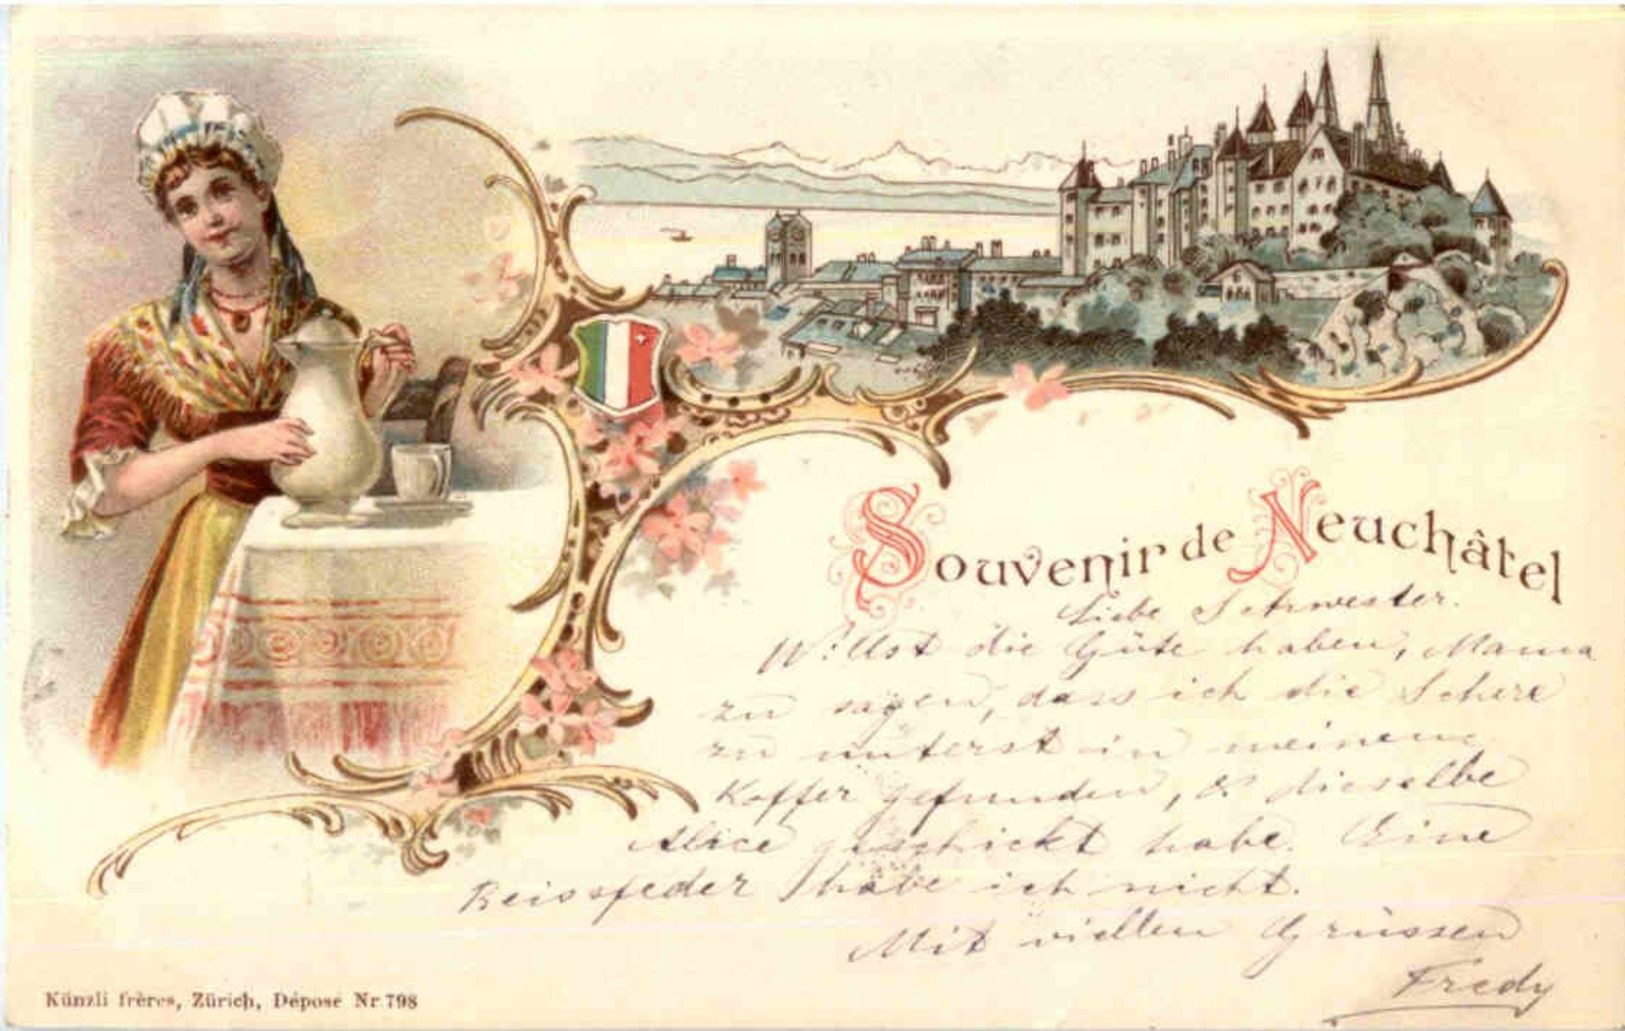 Souvenir de Neuchâtel
Liebe Schwester.
Willst die Güte haben, Mama
zu sagen, dass ich die Schere
zu unterst in meinem
Koffer gefunden, & dieselbe
Alice geschickt habe. Eine
Reissfeder habe ich nicht.
Mit viellen Grüssen
Fredy
Künzli frères, Zürich, Déposé Nr 798